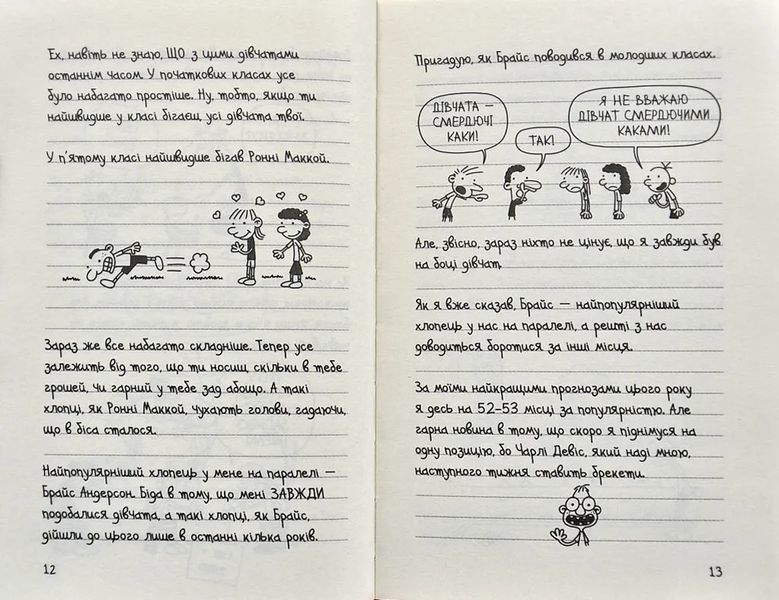 Ех, навіть не знаю, ЩО з цими дівчатами
останнім часом. У початкових класах усе
було набагато простіше. Ну, тобто, якщо ти
найшвидше у класі бігаєш, усі дівчата твої.
У п'ятому класі найшвидше бігав Ронні Маккой.
Зараз же все набагато складніше. Тепер усе
залежить від того, що ти носиш, скільки в тебе
грошей, чи гарний у тебе зад абощо. А такі
хлопці, як Ронні Маккой, чухають голови, гадаючи,
що в біса сталося.
Найпопулярніший хлопець у мене на паралелі —
Брайс Андерсон. Біда в тому, що мені ЗАВЖДИ
подобалися дівчата, а такі хлопці, як Брайс,
дійшли до цього лише в останні кілька років.
12
Пригадую, як Брайс поводився в молодших класах.
ДІВЧАТА —
СМЕРДЮЧІ
КАКИ!
ТАК!
Я НЕ ВВАЖАЮ
ДІВЧАТ СМЕРДЮЧИМИ
КАКАМИ!
Але, звісно, зараз ніхто не цінує, що я завжди був
на боці дівчат.
Як я вже сказав, Брайс — найпопулярніший
хлопець у нас на паралелі, а решті з нас
доводиться боротися за інші місця.
За моїми найкращими прогнозами цього року
я десь на 52–53 місці за популярністю. Але
гарна новина в тому, що скоро я піднімуся на
одну позицію, бо Чарлі Девіс, який наді мною,
наступного тижня ставить брекети.
13